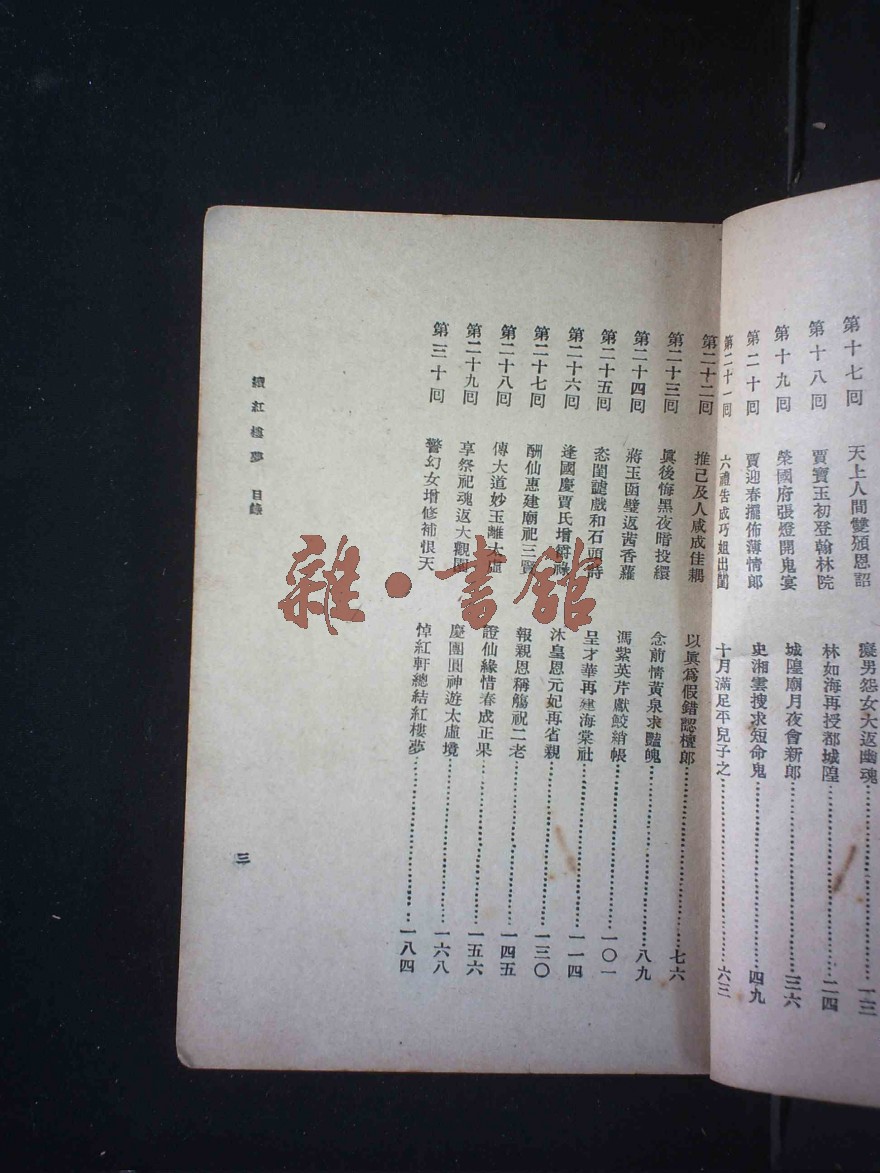 第十七回 天上人間雙頒恩詔 癡男怨女大返幽魂……一三
第十八回 賈寶玉初登翰林院 林如海再授都城隍……二四
第十九回 榮國府張燈開鬼宴 城隍廟月夜會新郎……三六
第二十回 賈迎春擺佈薄情郎 史湘雲搜求短命鬼……四九
第二十一回 六禮告成巧姐出閨 十月滿足平兒子之……六三
第二十二回 推己及人咸成佳耦 以眞爲假錯認檀郎……七六
第二十三回 眞後悔黑夜暗投繯 念前情黃泉求豔魄……八九
第二十四回 蔣玉函璧返茜香羅 馮紫英芹獻鮫綃帳……一〇一
第二十五回 恣閨謔戲和石頭詩 呈才華再建海棠社……一一四
第二十六回 逢國慶賈氏增爵祿 沐皇恩元妃再省親……一三〇
第二十七回 酬仙惠建廟祀三賢 報親恩稱觴祝二老……一四五
第二十八回 傳大道妙玉離太虛 證仙緣惜春成正果……一五六
第二十九回 享祭祀魂返大觀園 慶團圓神遊太虛境……一六八
第三十回 警幻女增修補恨天 悼紅軒總結紅樓夢……一八四
續紅樓夢 目錄
三
雜·書館